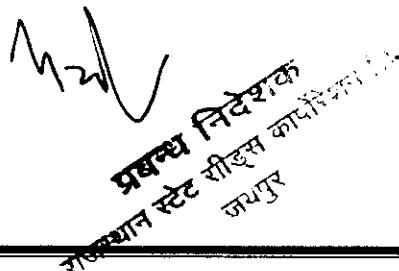 प्रबन्ध निदेशक
राजस्थान स्टेट सीड्स कार्पोरेशन
जयपुर